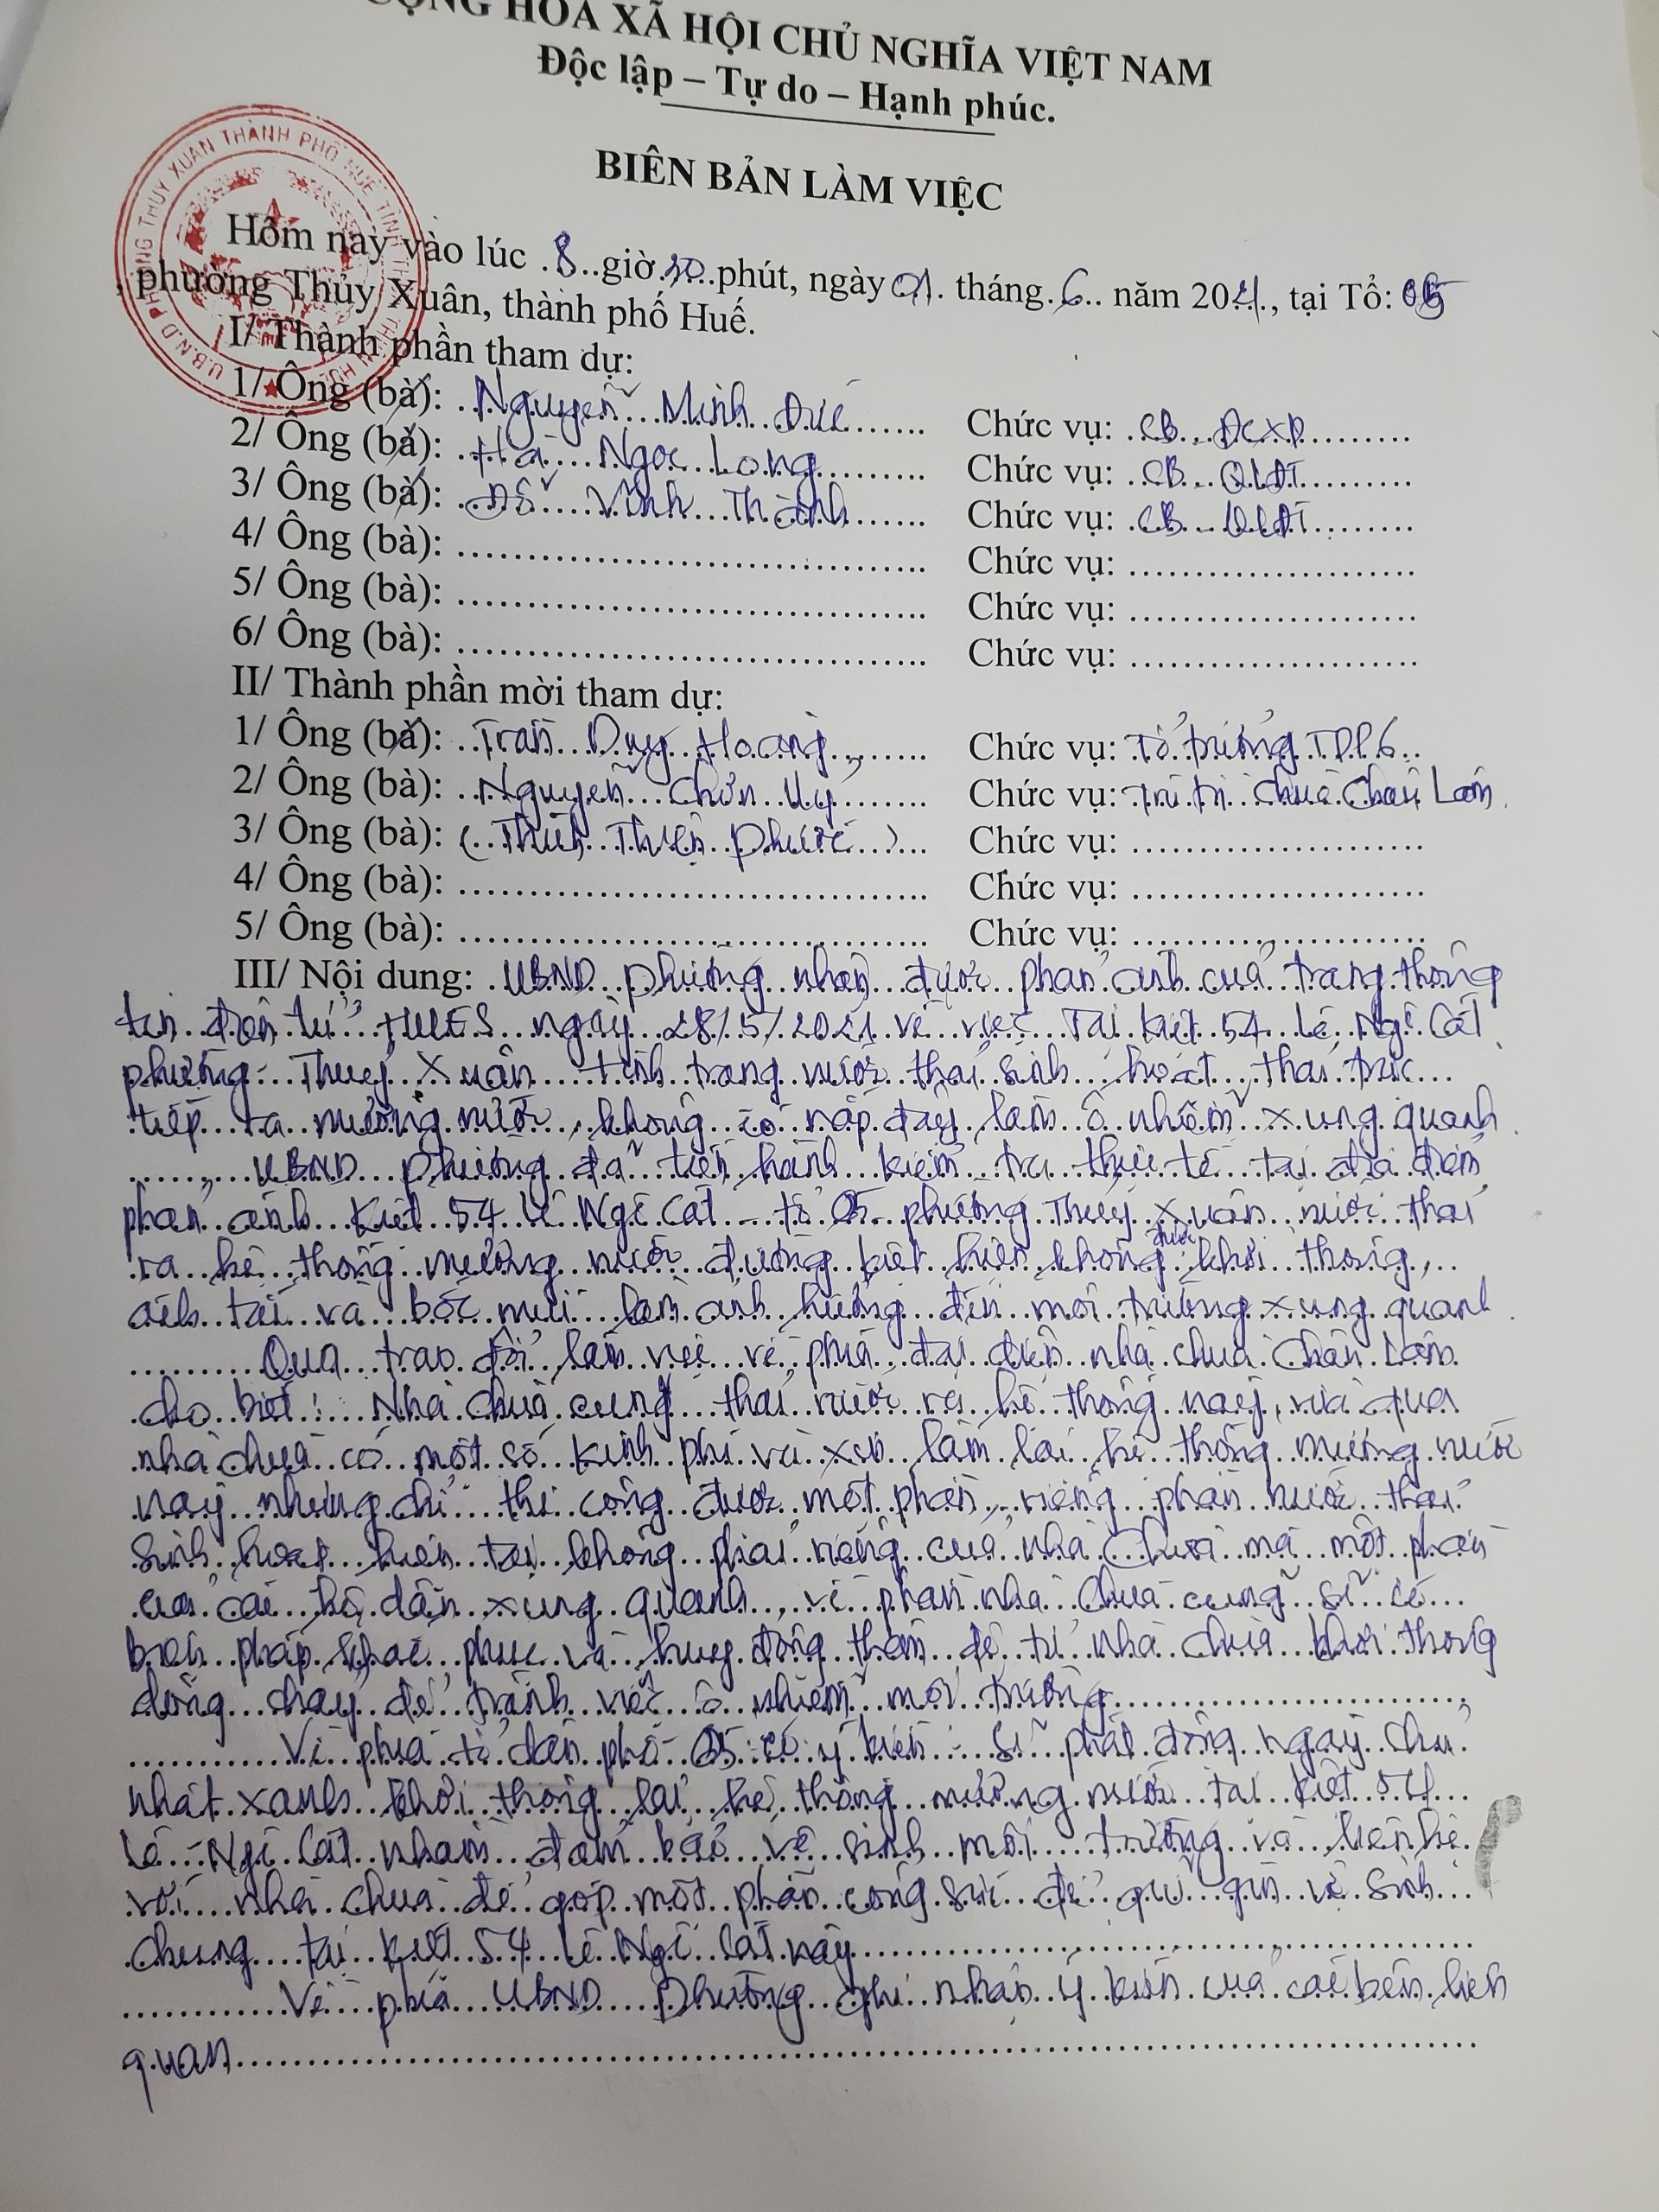 CỘNG HÒA XÃ HỘI CHỦ NGHĨA VIỆT NAM
Độc lập – Tự do – Hạnh phúc.
BIÊN BẢN LÀM VIỆC
U.B.N.D PHƯỜNG THỦY XUÂN THÀNH PHỐ HUẾ
Hôm nay vào lúc 8 giờ 30 phút, ngày 01 tháng 6 năm 2021, tại Tổ: 05
, phường Thủy Xuân, thành phố Huế.
I/ Thành phần tham dự:
1/ Ông (bà): Nguyễn Minh Đức Chức vụ: CB ĐCXD
2/ Ông (bà): Hà Ngọc Long Chức vụ: CB QLĐT
3/ Ông (bà): Đỗ Vĩnh Thành Chức vụ: CB QLĐT
4/ Ông (bà): Chức vụ:
5/ Ông (bà): Chức vụ:
6/ Ông (bà): Chức vụ:
II/ Thành phần mời tham dự:
1/ Ông (bà): Trần Duy Hoàng Chức vụ: Tổ trưởng TDP 6
2/ Ông (bà): Nguyễn Chơn Vỹ Chức vụ: Trú trì chùa Châu Lâm
3/ Ông (bà): (Thích Thiện Phước) Chức vụ:
4/ Ông (bà): Chức vụ:
5/ Ông (bà): Chức vụ:
III/ Nội dung: UBND phường nhận được phản ánh của trang thông
tin điện tử HUES ngày 28/5/2021 về việc Tại kiệt 54 Lê Ngô Cát
phường Thủy Xuân tình trạng nước thải sinh hoạt thải trực
tiếp ra mương nước, không có nắp đậy làm ô nhiễm xung quanh.
UBND phường đã tiến hành kiểm tra thực tế tại địa điểm
phản ánh kiệt 54 Lê Ngô Cát tổ 05 phường Thủy Xuân nước thải
ra hệ thống mương nước đường kiệt hiện không được khơi thông,
ách tắc và bốc mùi làm ảnh hưởng đến môi trường xung quanh.
Qua trao đổi làm việc về phía đại diện nhà chùa Châu Lâm
cho biết: Nhà chùa cũng thải nước ra hệ thống này, vừa qua
nhà chùa có một số kinh phí và xin làm lại hệ thống mương nước
này nhưng chỉ thi công được một phần, riêng phần nước thải
sinh hoạt hiện tại không phải riêng của nhà chùa mà một phần
của các hộ dân xung quanh, về phần nhà chùa cũng sẽ có
biện pháp khắc phục và huy động thêm đệ tử nhà chùa khơi thông
dòng chảy để tránh việc ô nhiễm môi trường
Về phía tổ dân phố 05 có ý kiến: Sẽ phát động ngày chủ
nhật xanh khơi thông lại hệ thống mương nước tại kiệt 54
Lê Ngô Cát nhằm đảm bảo vệ sinh môi trường và liên hệ
với nhà chùa để góp một phần công sức để giữ gìn vệ sinh
chung tại kiệt 54 Lê Ngô Cát này
Về phía UBND Phường ghi nhận ý kiến của các bên liên
quan